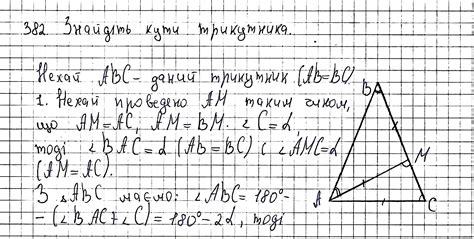 382. Знайдіть кути трикутника.
Нехай ABC - даний трикутник (AB=BC)
1. Нехай проведено AM таким чином,
що AM=AC, AM=BM. ∠C=α,
тоді ∠BAC=α (AB=BC) і ∠AMC=α
(AM=AC).
З ΔABC маємо: ∠ABC=180°-
-(∠BAC+∠C)=180°-2α, тоді
B
M
A
C